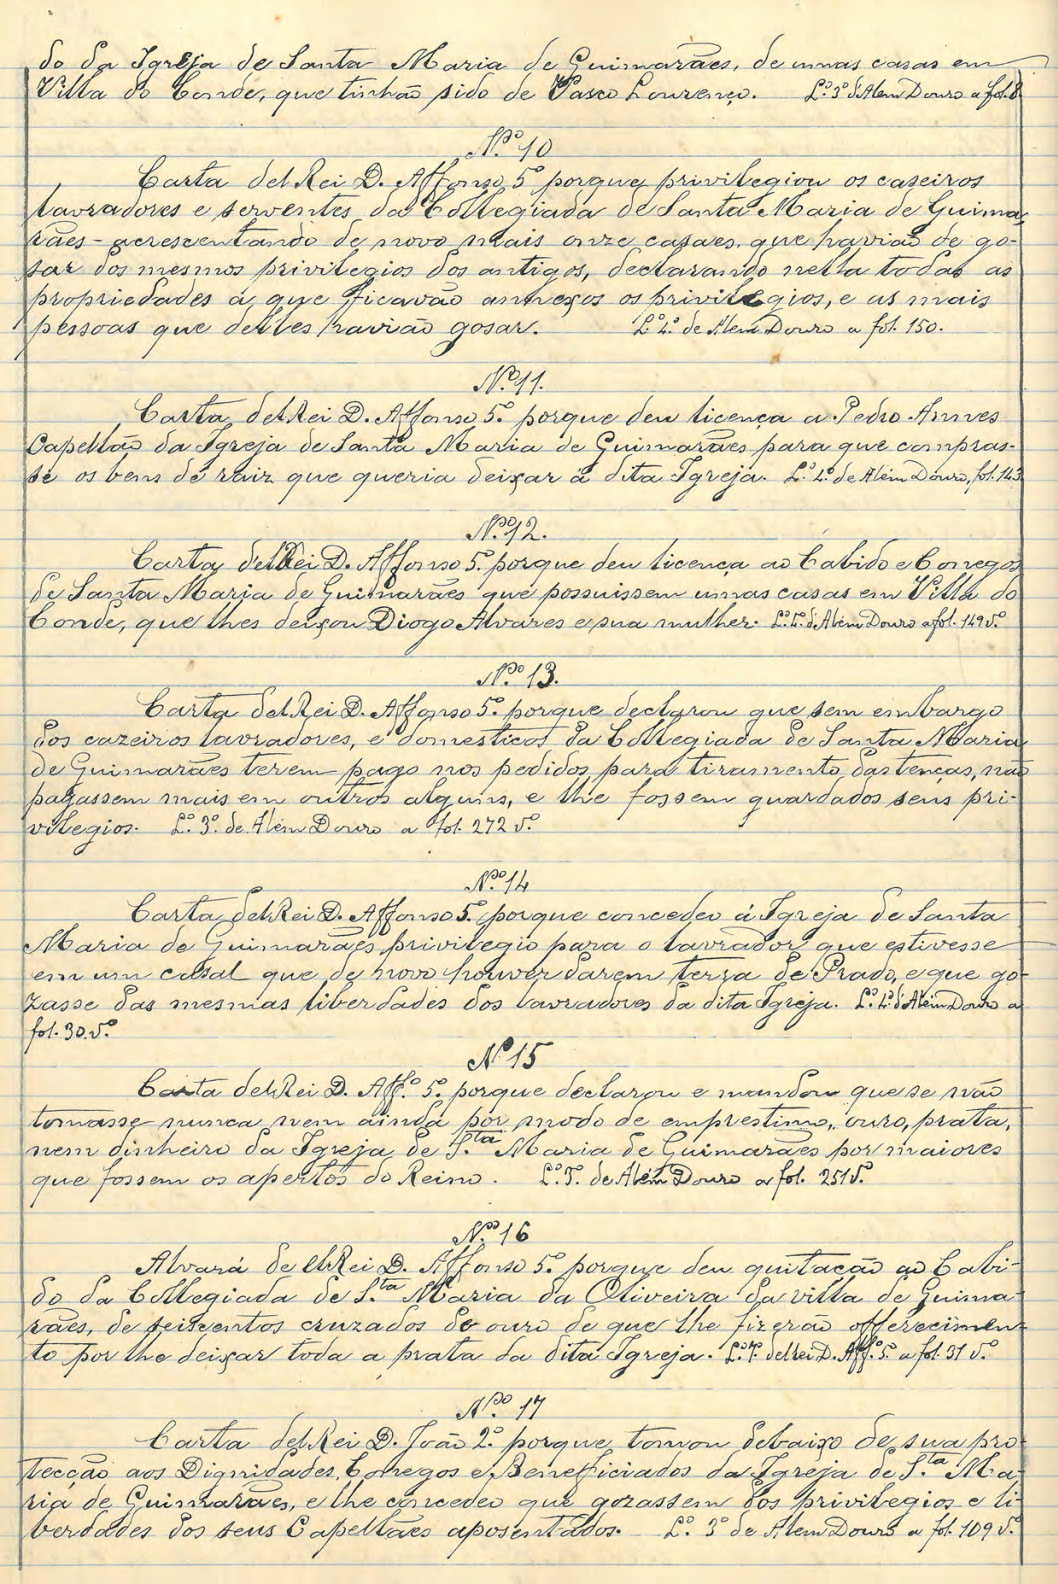 do da Igreja de Santa Maria de Guimarães, de umas casas em
Villa do Conde, que tinhão sido de Vasco Lourenço. L.º 3.º d'Alem Douro a fol. 8
N.º 10
Carta del Rei D. Affonso 5.º porque privilegiou os cazeiros
lavradores e serventes da Collegiada de Santa Maria de Guima-
rães - acrescentando de novo mais onze casaes, que havião de go-
sar dos mesmos privilegios dos antigos, declarando nella todas as
propriedades a que ficavão annexos os privilegios, e as mais
pessoas que delles havião gosar. L.º 4.º de Alem Douro a fol. 150.
N.º 11.
Carta del Rei D. Affonso 5.º porque deu licença a Pedro Annes
Capellão da Igreja de Santa Maria de Guimarães para que compras-
se os bens de raiz que queria deixar á dita Igreja. L.º 4.º de Alem Douro, fol. 143
N.º 12.
Carta del Rei D. Affonso 5.º porque deu licença ao Cabido e Conegos
de Santa Maria de Guimarães que possuissem umas casas em Villa do
Conde, que lhes deixou Diogo Alvares e sua mulher. L.º 4.º d'Alem Douro a fol. 149 v.º
N.º 13.
Carta del Rei D. Affonso 5.º porque declarou que sem embargo
dos cazeiros lavradores, e domesticos da Collegiada de Santa Maria
de Guimarães terem pago nos pedidos para tiramento das tenças, não
pagassem mais em outros alguns, e lhe fossem guardados seus pri-
vilegios. L.º 3.º de Alem Douro a fol. 272 v.º
N.º 14
Carta del Rei D. Affonso 5.º porque concedeo á Igreja de Santa
Maria de Guimarães privilegio para o lavrador que estivesse
em um casal que de novo houver darem terra de Prado, e que go-
zasse das mesmas liberdades dos lavradores da dita Igreja. L.º 4.º d'Alem Douro a
fol. 30. v.º
Nº 15
Carta del Rei D. Aff.º 5.º porque declarou e mandou que se não
tomasse nunca nem ainda por modo de emprestimo, ouro, prata,
nem dinheiro da Igreja de S.ta Maria de Guimarães por maiores
que fossem os apertos do Reino. L.º 3.º de Alem Douro a fol. 251 v.º
N.º 16
Alvará de ElRei D. Affonso 5.º porque deu quitação ao Cabi-
do da Collegiada de S.ta Maria da Oliveira da villa de Guima-
rães, de seiscentos cruzados de ouro de que lhe fizerão offerecimen-
to por lhe deixar toda a prata da dita Igreja. L.º 7.º del rei D. Aff.º 5.º a fol. 31 v.º
N.º 17
Carta del Rei D. João 2.º porque tomou debaixo de sua pro-
tecção aos Dignidades, Conegos e Beneficiados da Igreja de S.ta Ma-
ria de Guimarães, e lhe concedeo que gozassem dos privilegios e li-
berdades dos seus Capellães aposentados. L.º 3.º de Alem Douro a fol. 109 v.º